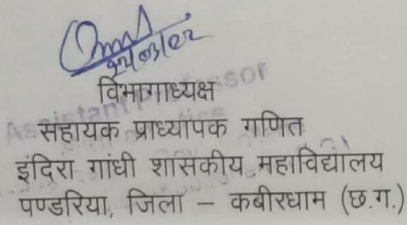 विभागाध्यक्ष
सहायक प्राध्यापक गणित
इंदिरा गांधी शासकीय महाविद्यालय
पण्डरिया, जिला – कबीरधाम (छ.ग.)